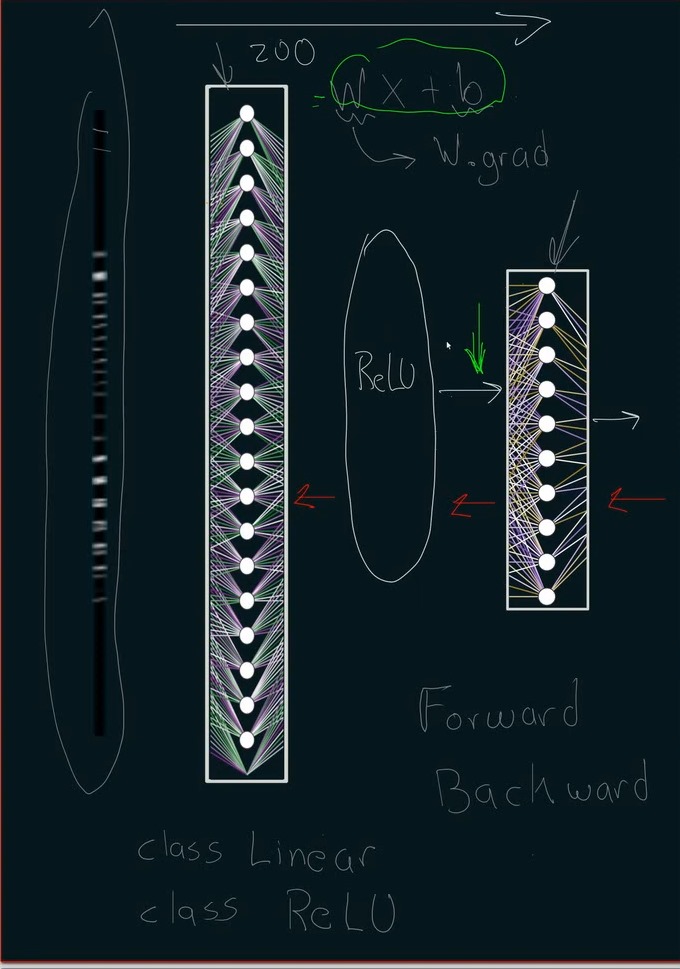 200
= W x + b
W.grad
ReLU
Forward
Backward
class Linear
class ReLU